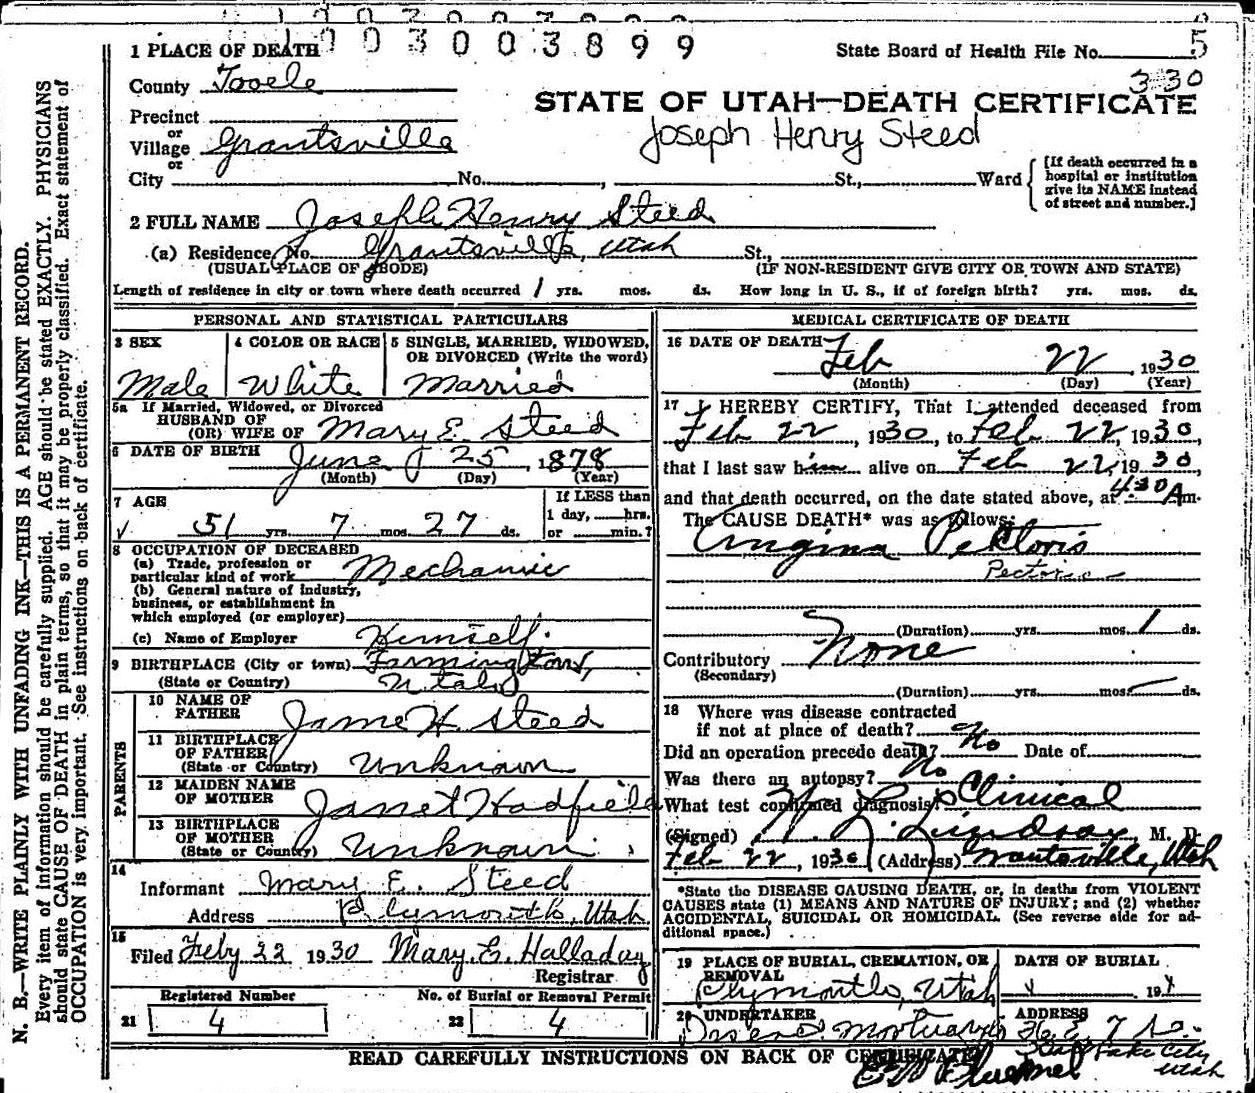 1003003899
5
1 PLACE OF DEATH
State Board of Health File No.
3-30
County Tooele
STATE OF UTAH—DEATH CERTIFICATE
Joseph Henry Steed
Precinct
or
Village Grantsville
or
City No. , St., Ward
[If death occurred in a hospital or institution give its NAME instead of street and number.]
2 FULL NAME Joseph Henry Steed
(a) Residence, No. Grantsville, Utah St.,
(USUAL PLACE OF ABODE) (IF NON-RESIDENT GIVE CITY OR TOWN AND STATE)
Length of residence in city or town where death occurred 1 yrs. mos. ds. How long in U. S., if of foreign birth? yrs. mos. ds.
PERSONAL AND STATISTICAL PARTICULARS
3 SEX
Male
4 COLOR OR RACE
White
5 SINGLE, MARRIED, WIDOWED, OR DIVORCED (Write the word)
Married
5a If Married, Widowed, or Divorced
HUSBAND OF
(OR) WIFE OF Mary E. Steed
6 DATE OF BIRTH June 25, 1878
(Month) (Day) (Year)
7 AGE
51 yrs. 7 mos. 27 ds.
If LESS than
1 day, hrs.
or min.?
8 OCCUPATION OF DECEASED
(a) Trade, profession or
particular kind of work Mechanic
(b) General nature of industry,
business, or establishment in
which employed (or employer)
(c) Name of Employer Himself.
9 BIRTHPLACE (City or town) Farmington,
(State or Country) Utah
PARENTS
10 NAME OF
FATHER James H. Steed
11 BIRTHPLACE
OF FATHER
(State or Country) Unknown
12 MAIDEN NAME
OF MOTHER Janet Hadfield
13 BIRTHPLACE
OF MOTHER
(State or Country) Unknown
14
Informant Mary E. Steed
Address Plymouth, Utah
15
Filed Feby 22 1930 Mary E. Halladay
Registrar
Registered Number No. of Burial or Removal Permit
21 4 22 4
MEDICAL CERTIFICATE OF DEATH
16 DATE OF DEATH Feb 22, 1930
(Month) (Day) (Year)
17 I HEREBY CERTIFY, That I attended deceased from
Feb 22, 1930, to Feb 22, 1930,
that I last saw him alive on Feb 22, 1930,
and that death occurred, on the date stated above, at 4:30 A m.
The CAUSE DEATH* was as follows:
Angina Pektoris
Pectoris
(Duration) yrs. mos. 1 ds.
Contributory None
(Secondary)
(Duration) yrs. mos. ds.
18 Where was disease contracted
if not at place of death?
Did an operation precede death? No Date of
Was there an autopsy? No
What test confirmed diagnosis? Clinical
(Signed) W. L. Lindsay, M. D.
Feb 22, 1930 (Address) Grantsville, Utah
*State the DISEASE CAUSING DEATH, or, in deaths from VIOLENT
CAUSES state (1) MEANS AND NATURE OF INJURY; and (2) whether
ACCIDENTAL, SUICIDAL OR HOMICIDAL. (See reverse side for ad-
ditional space.)
19 PLACE OF BURIAL, CREMATION, OR
REMOVAL
Plymouth, Utah
DATE OF BURIAL
, 19
20 UNDERTAKER
Mortuary
ADDRESS
36 E. 7 So.
Salt Lake City
Utah
READ CAREFULLY INSTRUCTIONS ON BACK OF CERTIFICATE
N. B.—WRITE PLAINLY WITH UNFADING INK—THIS IS A PERMANENT RECORD.
Every item of information should be carefully supplied. AGE should be stated EXACTLY. PHYSICIANS
should state CAUSE OF DEATH in plain terms, so that it may be properly classified. Exact statement of
OCCUPATION is very important. See instructions on back of certificate.